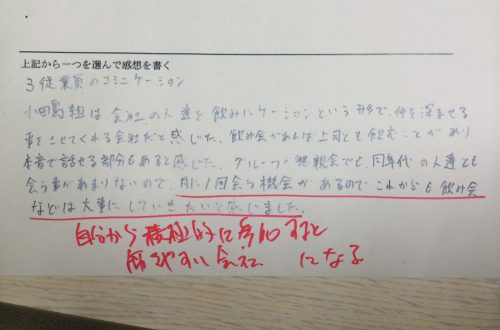 上記から一つを選んで感想を書く
3 従業員のコミニケーション
小田島組は、会社の人達を飲みにケーションという形で、仲を深ませる
事をさせてくれる会社だと感じた。飲み会があれば上司とも飲むことがあり
本音で話せる部分もあると感じた。グループ懇親会でも同年代の人達とも
会う事があまりないので、月に1回会う機会があるのでこれからも飲み会
などは大事にしていきたいと感じました。
自分から積極的に参加すると
居やすい会社 になる